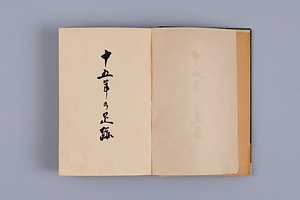 十五年の足跡